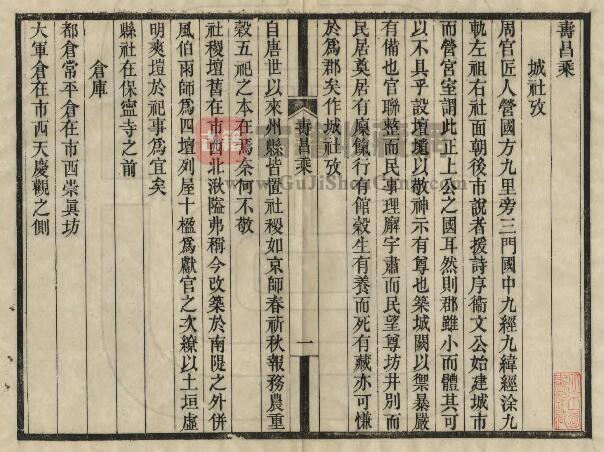 壽昌乘
城社攷
周官匠人營國方九里旁三門國中九經九緯經涂九
軌左祖右社面朝後市說者援詩序衞文公始建城市
而營宮室謂此正上公之國耳然則郡雖小而體其可
以不具乎設壇壝以敬神示有尊也築城闕以禦暴嚴
有備也官聯整而民事理廨宇肅而民望尊坊井別而
民居奠居有廩餼行有館穀生有養而死有藏亦可慊
於爲郡矣作城社攷
壽昌乘
一
自唐世以來州縣皆置社稷如京師春祈秋報務農重
穀五祀之本在焉奈何不敬
社稷壇舊在市西北湫隘弗稱今改築於南隄之外倂
風伯雨師爲四壇列屋十楹爲獻官之次繚以土垣虛
明爽塏於祀事爲宜矣
縣社在保寧寺之前
倉庫
都倉常平倉在市西崇眞坊
大軍倉在市西天慶觀之側
www.GuJiShuGuan.com